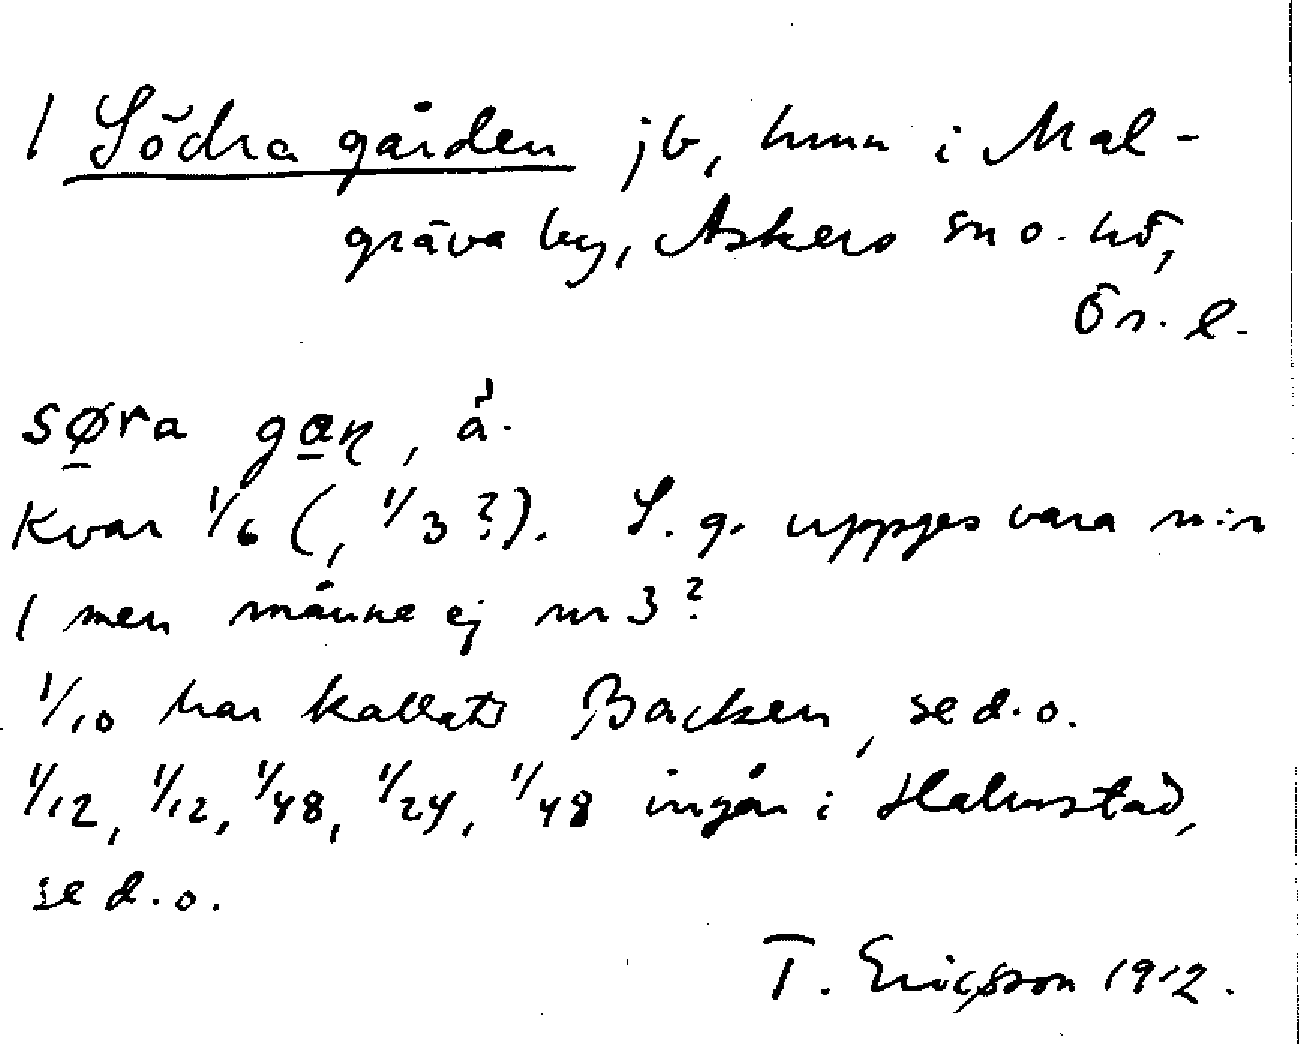 1 Södra gården jb, hmn i Mal-
gräva by, Askers sn o. hd,
Ör. l.
søra gaɳ, å.
Kvar 1/6 (, 1/3?). S. g. uppges vara n:r
1 men månne ej nr 3?
1/10 har kallats Backen, se d.o.
1/12, 1/12, 1/48, 1/24, 1/48 ingår i Halmstad,
se d.o.
T. Ericsson 1912.